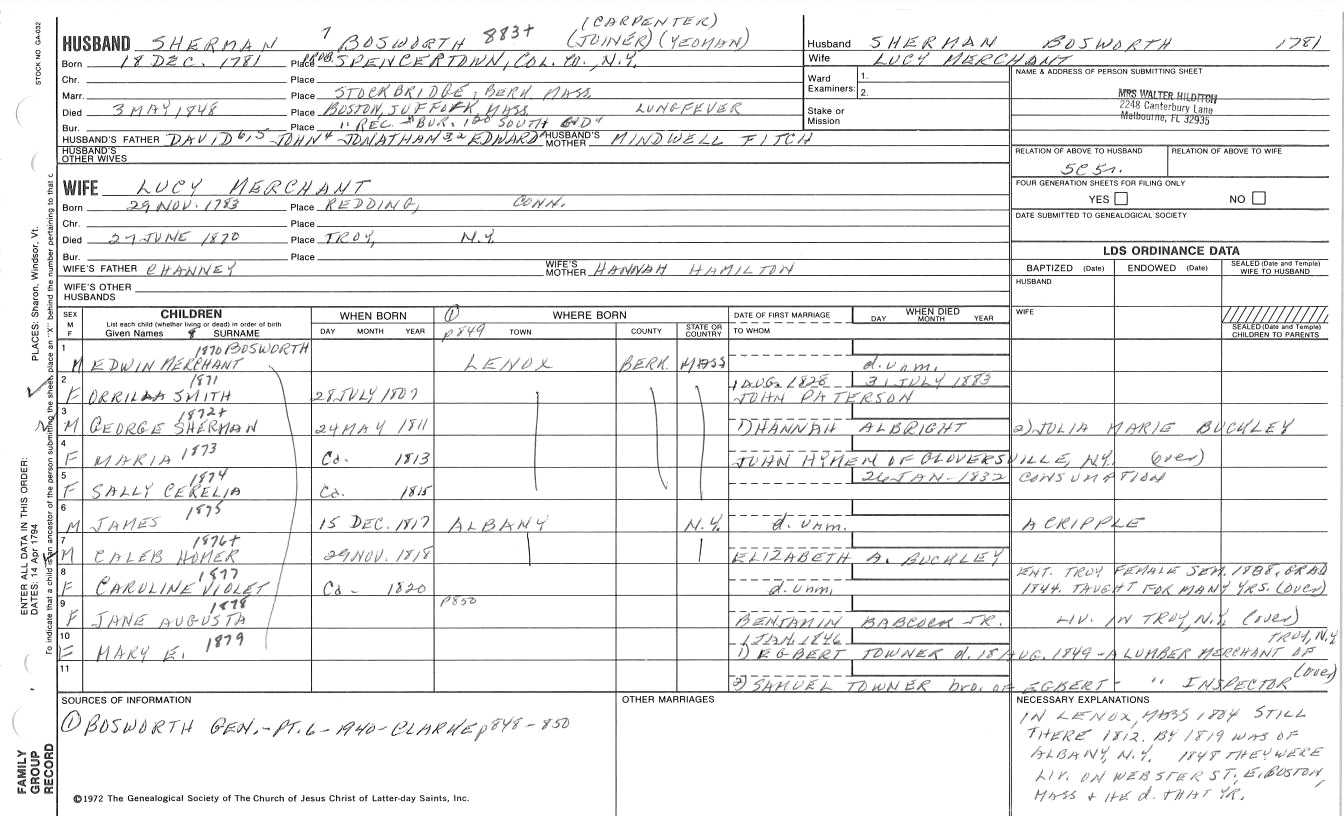 STOCK NO. GA-032
PLACES: Sharon, Windsor, Vt.
ENTER ALL DATA IN THIS ORDER:
DATES: 14 Apr 1794
To indicate that a child is an ancestor of the person submitting the sheet, place an "X" behind the number pertaining to that c
FAMILY GROUP RECORD
(CARPENTER)
HUSBAND SHERMAN 7 BOSWORTH 883+ (JOINER) (YEOMAN)
Born 18 DEC. 1781 Place PROB. SPENCERTOWN, COL. CO., N.Y.
Chr. Place
Marr. Place STOCKBRIDGE, BERK MASS
Died 3 MAY 1848 Place BOSTON, SUFFOLK, MASS. LUNG FEVER
Bur. Place "REC. "BUR. 120 SOUTH END"
HUSBAND'S FATHER DAVID 6,5 JOHN 4 JONATHAN 32 EDWARD 1 HUSBAND'S MOTHER MINDWELL FITCH
HUSBAND'S OTHER WIVES
WIFE LUCY MERCHANT
Born 29 NOV. 1783 Place REDDING, CONN.
Chr. Place
Died 27 JUNE 1870 Place TROY, N.Y.
Bur. Place
WIFE'S FATHER CHANNEY WIFE'S MOTHER HANNAH HAMILTON
WIFE'S OTHER HUSBANDS
Husband SHERMAN BOSWORTH 1781
Wife LUCY MERCHANT
Ward Examiners: 1. 2.
Stake or Mission
NAME & ADDRESS OF PERSON SUBMITTING SHEET
MRS WALTER HILDITCH
2248 Canterbury Lane
Melbourne, FL 32935
RELATION OF ABOVE TO HUSBAND RELATION OF ABOVE TO WIFE
5C 5r.
FOUR GENERATION SHEETS FOR FILING ONLY
YES NO
DATE SUBMITTED TO GENEALOGICAL SOCIETY
LDS ORDINANCE DATA
BAPTIZED (Date) ENDOWED (Date) SEALED (Date and Temple) WIFE TO HUSBAND
HUSBAND
WIFE
SEALED (Date and Temple) CHILDREN TO PARENTS
SEX M F CHILDREN WHEN BORN ① WHERE BORN DATE OF FIRST MARRIAGE WHEN DIED
List each child (whether living or dead) in order of birth
Given Names 8 SURNAME DAY MONTH YEAR p849 TOWN COUNTY STATE OR COUNTRY TO WHOM DAY MONTH YEAR
1 M EDWIN MERCHANT 1870 BOSWORTH LENOX BERK MASS d. unm.
2 F ORRILLA SMITH 1871 28 JULY 1807 1 AUG. 1828 31 JULY 1883
JOHN PATERSON
3 M GEORGE SHERMAN 1872+ 24 MAY 1811 1) HANNAH ALBRIGHT 2) JULIA MARIE BUCKLEY
4 F MARIA 1873 Ca. 1813 JOHN HYMEN OF GLOVERSVILLE, N.Y. (over)
5 F SALLY CERELIA 1874 Ca. 1815 26 JAN - 1832 CONSUMPTION
6 M JAMES 1875 15 DEC. 1817 ALBANY N.Y. d. unm. A CRIPPLE
7 M CALEB HOMER 1876+ 29 NOV. 1818 ELIZABETH A. BUCKLEY
8 F CAROLINE VIOLET 1877 Ca. 1820 d. unm. ENT. TROY FEMALE SEM. 1838, GRAD
1844. TAUGHT FOR MANY YRS. (over)
9 F JANE AUGUSTA 1878 p850 BENJAMIN BABCOCK JR. LIV. IN TROY, N.Y. (over)
10 F MARY E. 1879 1 JAN. 1846 TROY, N.Y
1) EGBERT TOWNER d. 18 AUG. 1849 - A LUMBER MERCHANT OF
11 2) SAMUEL TOWNER bro. of EGBERT - " INSPECTOR (over)
SOURCES OF INFORMATION
① BOSWORTH GEN. - PT. 6 - 1940 - CLARKE p848-850
OTHER MARRIAGES
NECESSARY EXPLANATIONS
IN LENOX, MASS 1804 STILL
THERE 1812. BY 1819 WAS OF
ALBANY, N.Y. 1848 THEY WERE
LIV. ON WEBSTER ST., E. BOSTON,
MASS & HE d. THAT YR.
©1972 The Genealogical Society of The Church of Jesus Christ of Latter-day Saints, Inc.